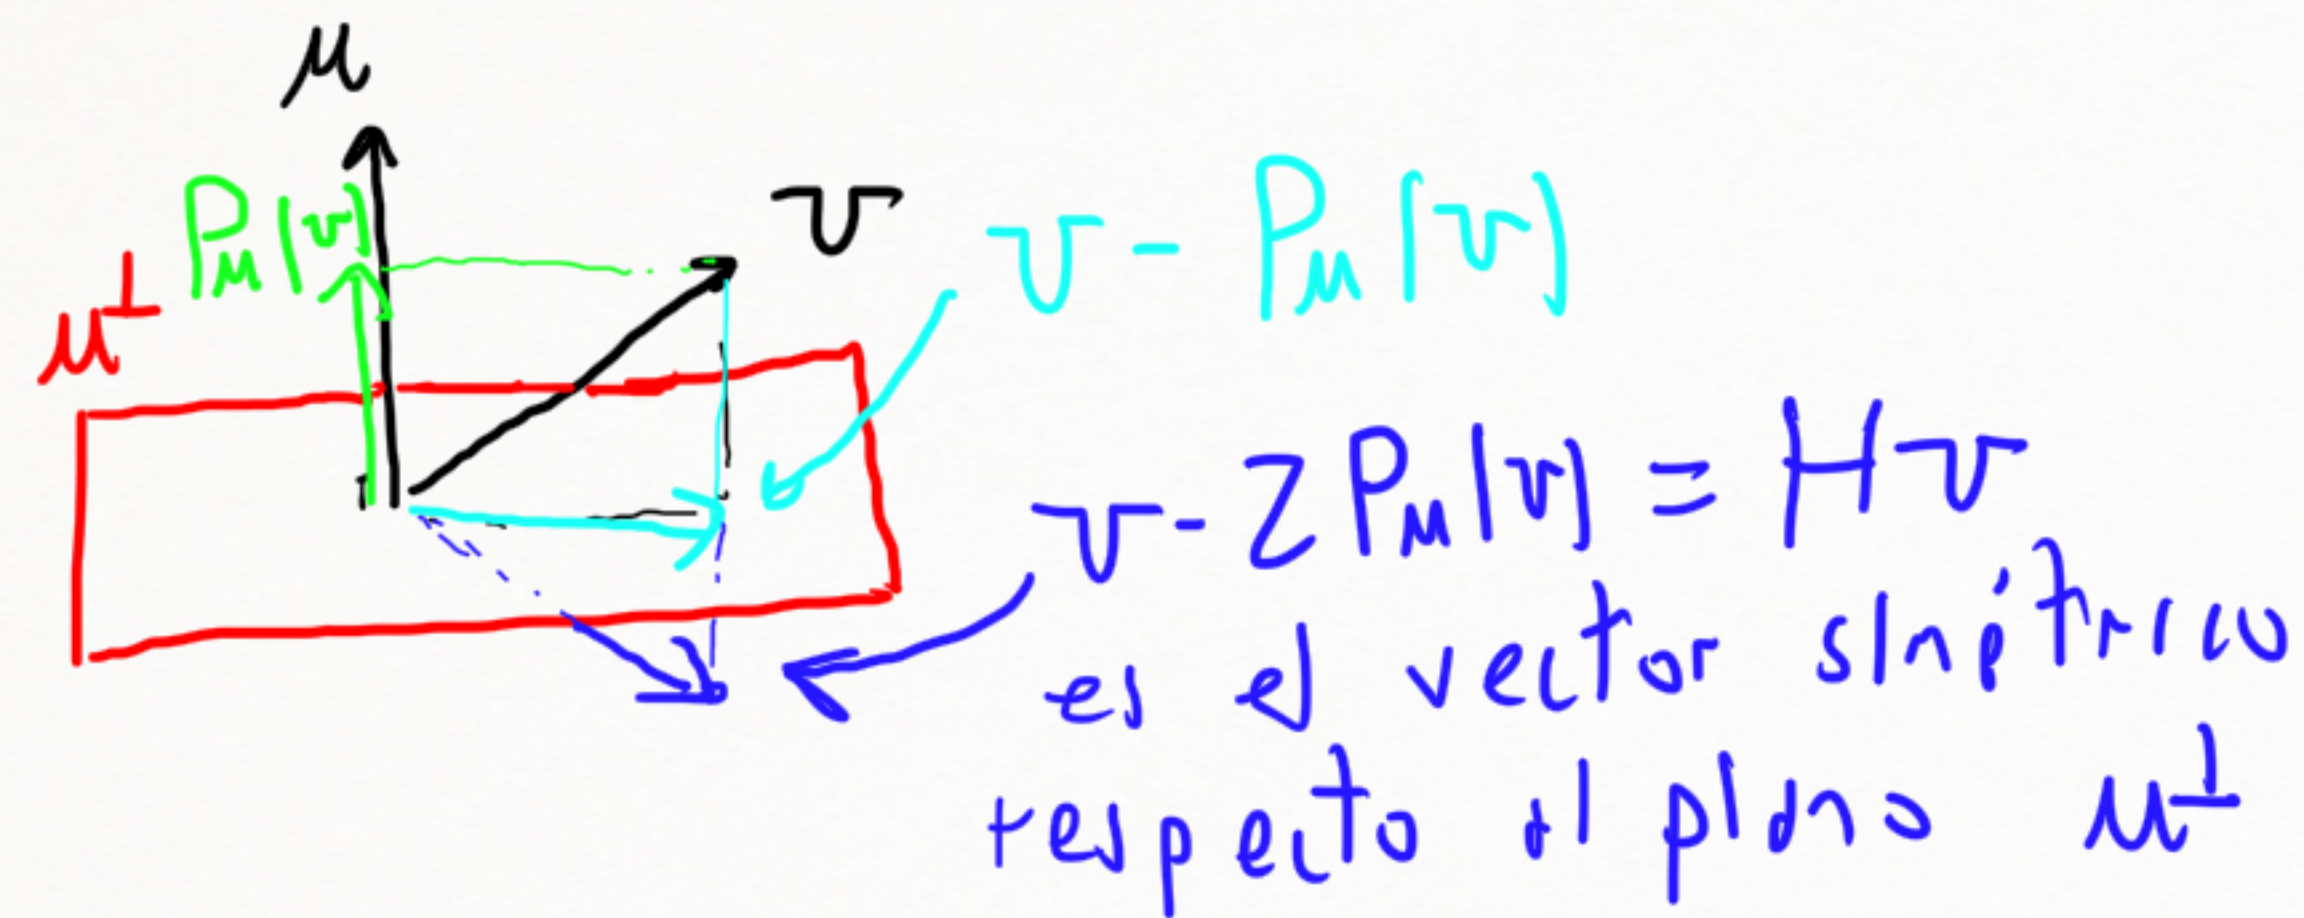 μ
P_μ(v)
v
v - P_μ(v)
μ^⊥
v - 2P_μ(v) = Hv
es el vector simétrico
respecto al plano μ^⊥